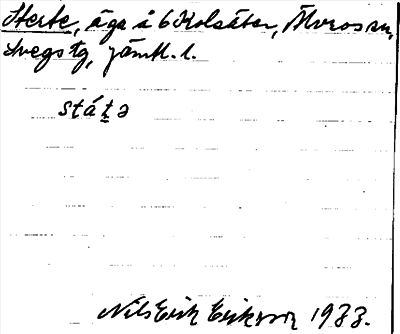 Sterte, äga å 6 Kolsäter, Älvros sn,
Svegs tg, Jämtl. l.
stáṯə
Nils Erik Eriksson 1933.